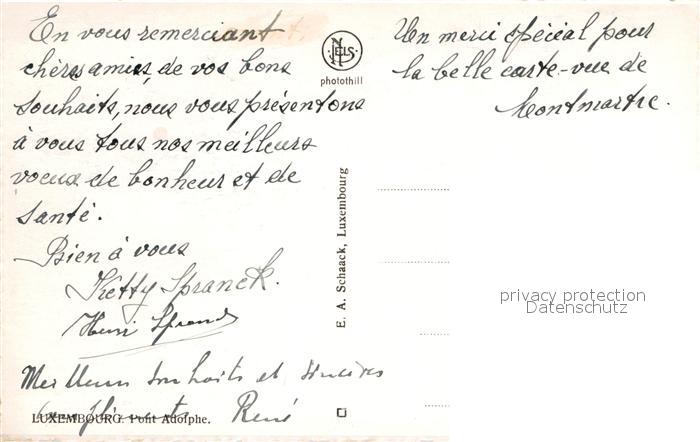 En vous remerciant
chères amies, de vos bons
souhaits, nous vous présentons
à vous tous nos meilleurs
voeux de bonheur et de
santé.
Bien à vous
Ketty Spranck.
Henri Spranck
Meilleurs souhaits et sincères
compliments René
LUXEMBOURG. Pont Adolphe.
NELS
photothill
E. A. Schaack, Luxembourg
Un merci spécial pour
la belle carte-vue de
Montmartre.
privacy protection
Datenschutz